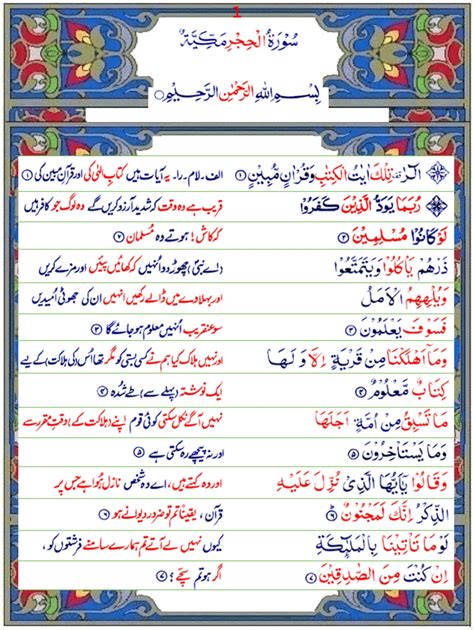 1
سُوْرَةُ الْحِجْرِ مَكِّيَّةٌ
بِسْمِ اللهِ الرَّحْمٰنِ الرَّحِيْمِ
الٓرٰ تِلْكَ اٰيٰتُ الْكِتٰبِ وَقُرْاٰنٍ مُّبِيْنٍ ۝۱ الف۔ لام۔ را۔ یہ آیات ہیں کتابِ الٰہی کی اور قرآنِ مبین کی ۝۱
رُبَمَا يَوَدُّ الَّذِيْنَ كَفَرُوْا قریب ہے وہ وقت کہ شدید آرزو کریں گے وہ لوگ جو کافر ہیں
لَوْ كَانُوْا مُسْلِمِيْنَ ۝۲ کہ کاش! ہوتے وہ مُسلمان ۝۲
ذَرْهُمْ يَاْكُلُوْا وَيَتَمَتَّعُوْا (اے نبی) چھوڑ دو اُنہیں کہ کھائیں پیئیں اور مزے کریں
وَيُلْهِهِمُ الْاَمَلُ اور بہلاوے میں ڈالے رکھیں اُنہیں ان کی جھوٹی اُمیدیں
فَسَوْفَ يَعْلَمُوْنَ ۝۳ سو عنقریب اُنہیں معلوم ہو جائے گا ۝۳
وَمَآ اَهْلَكْنَا مِنْ قَرْيَةٍ اِلَّا وَلَهَا اور نہیں ہلاک کیا ہم نے کسی بستی کو مگر تھا اُس کی (ہلاکت) کے لیے
كِتَابٌ مَّعْلُوْمٌ ۝۴ ایک نوشتہ (پہلے سے) طے شُدہ ۝۴
مَا تَسْبِقُ مِنْ اُمَّةٍ اَجَلَهَا نہیں آگے نکل سکتی کوئی قوم اپنے (ہلاکت کے) وقتِ مقرر سے
وَمَا يَسْتَاْخِرُوْنَ ۝۵ اور نہ پیچھے رہ سکتی ہے ۝۵
وَقَالُوْا يٰٓاَيُّهَا الَّذِيْ نُزِّلَ عَلَيْهِ اور وہ کہتے ہیں، اے وہ شخص نازل ہوا ہے جس پر
الذِّكْرُ اِنَّكَ لَمَجْنُوْنٌ ۝۶ قرآن، یقیناً تم تو ضرور دیوانے ہو ۝۶
لَوْ مَا تَاْتِيْنَا بِالْمَلٰٓئِكَةِ کیوں نہیں لے آتے تم ہمارے سامنے فرشتوں کو،
اِنْ كُنْتَ مِنَ الصّٰدِقِيْنَ ۝۷ اگر ہو تم سچّے؟ ۝۷